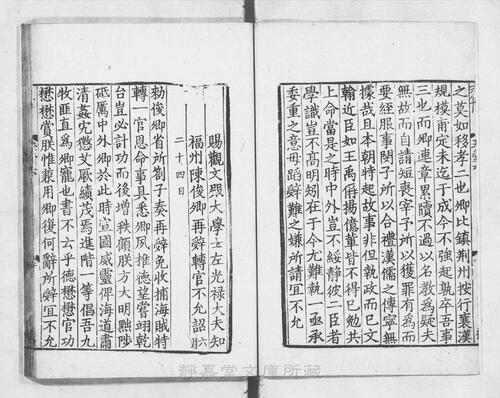 之莫如移孝二也卿比鎮荆州按行襄漢
規模甫定未迄于成今不強起孰卒吾事
三也而卿連章累牘不過以名教爲疑夫
無故而自請短喪宰予所以獲罪有爲而
要絰服事閔子所以合禮漢儒之傳寧無
據哉且本朝特起故事非但執政而已文
翰近臣如王禹偁楊億輩皆不得已勉其
上命當是之時中外豈不綏靜彼二臣者
學識豈不高明矧在于今尤難執一亟承
委重之意毋蹈辭難之嫌所請宜不允
賜觀文殿大學士左光祿大夫知
福州陳俊卿再辭轉官不允詔 六
二十四日
敕俊卿省所劄子奏再辭免收捕海賊特
轉一官恩命事具悉卿夙推德望嘗翊乾
台豈必計功而後增秩顧朕方大明黜陟
砥厲中外卿於此時宣國威靈俾海道肅
清姦宄懲艾厥績茂焉進階一等倡吾九
牧匪直爲卿寵也書不云乎德懋懋官功
懋懋賞朕惟兼用卿復何辭所辭宜不允
靜嘉堂文庫所藏